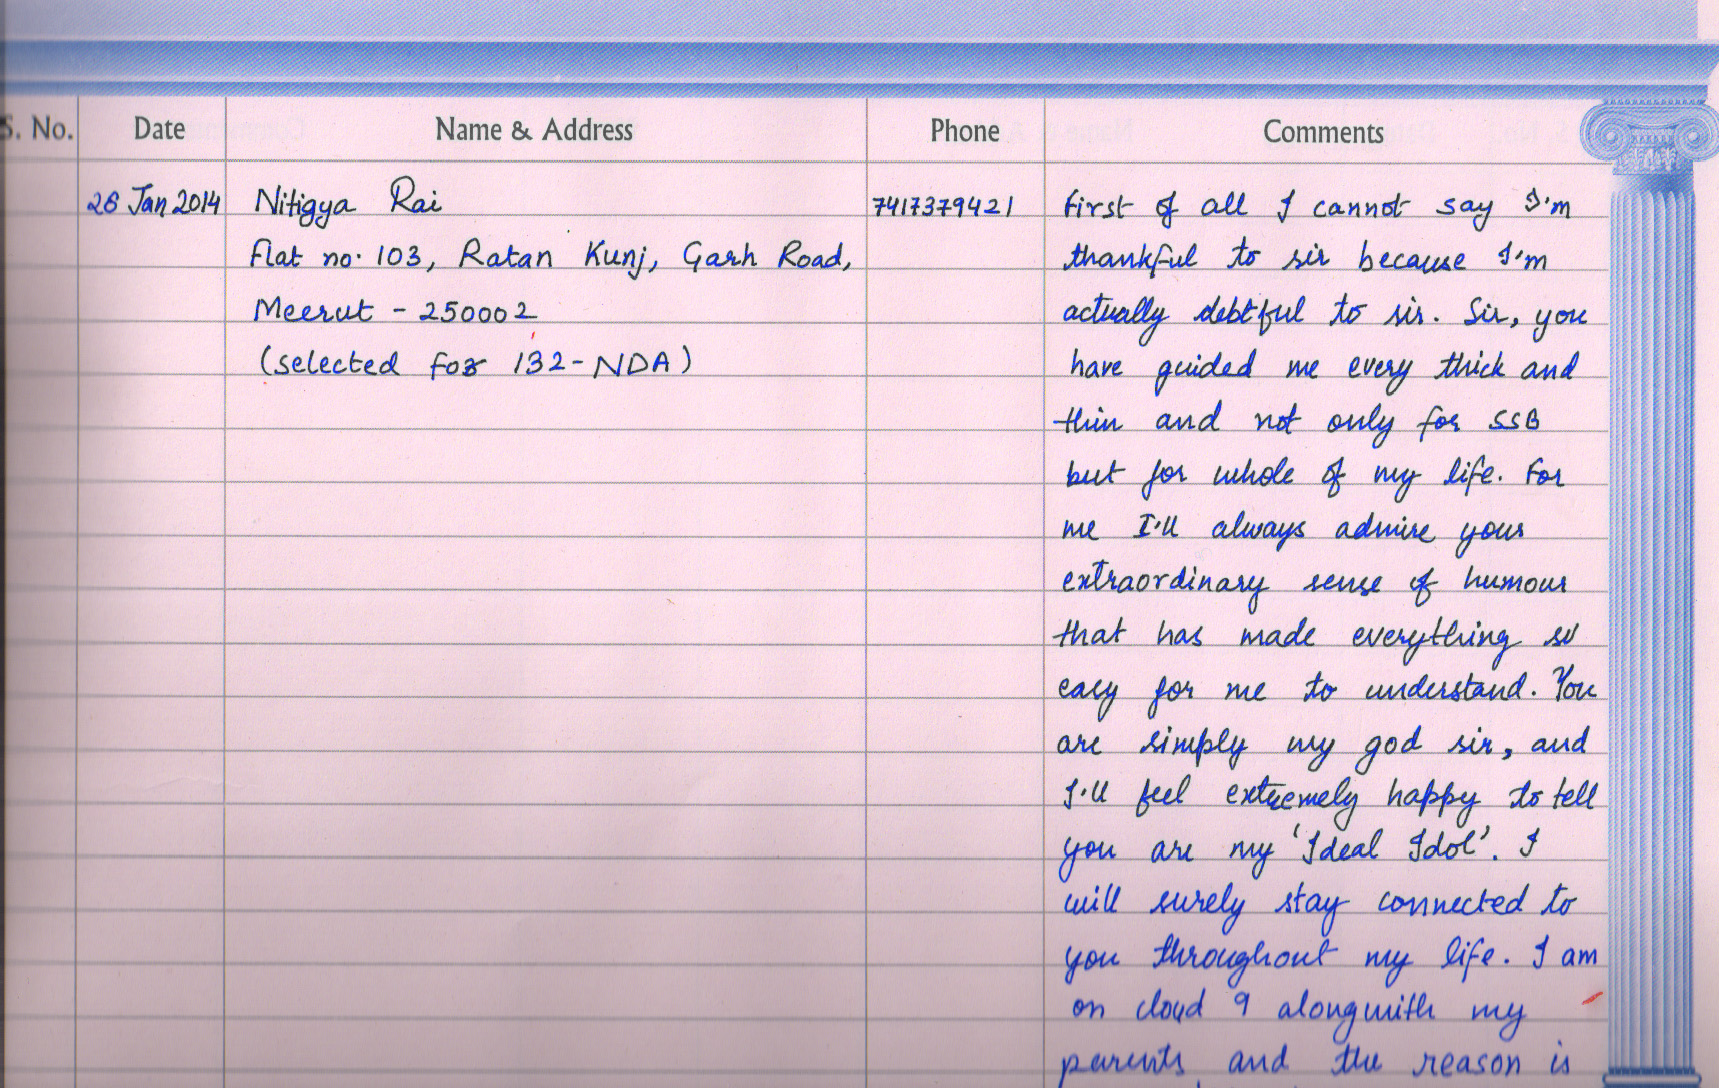 S. No. Date Name & Address Phone Comments
26 Jan 2014 Nitigya Rai 7417379421 First of all I cannot say I'm
Flat no. 103, Ratan Kunj, Garh Road, thankful to sir because I'm
Meerut - 250002 actually debtful to sir. Sir, you
(selected for 132-NDA) have guided me every thick and
thin and not only for SSB
but for whole of my life. For
me I'll always admire your
extraordinary sense of humour
that has made everything so
easy for me to understand. You
are simply my god sir, and
I'll feel extremely happy to tell
you are my 'Ideal Idol'. I
will surely stay connected to
you throughout my life. I am
on cloud 9 alongwith my
parents and the reason is